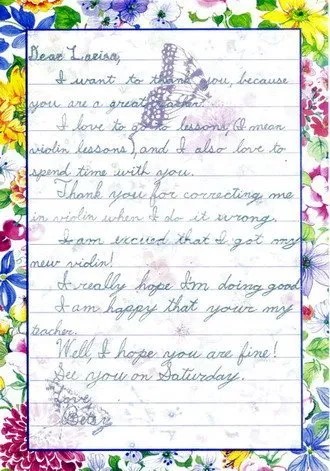 Dear Larisa,
I want to thank you, because
you are a great teacher.
I love to go to lessons, (I mean
violin lessons), and I also love to
spend time with you.
Thank you for correcting me
in violin when I do it wrong.
I am excued that I got my
new violin!
I really hope I'm doing good
I am happy that your my
teacher.
Well, I hope you are fine!
See you on Saturday.
Love